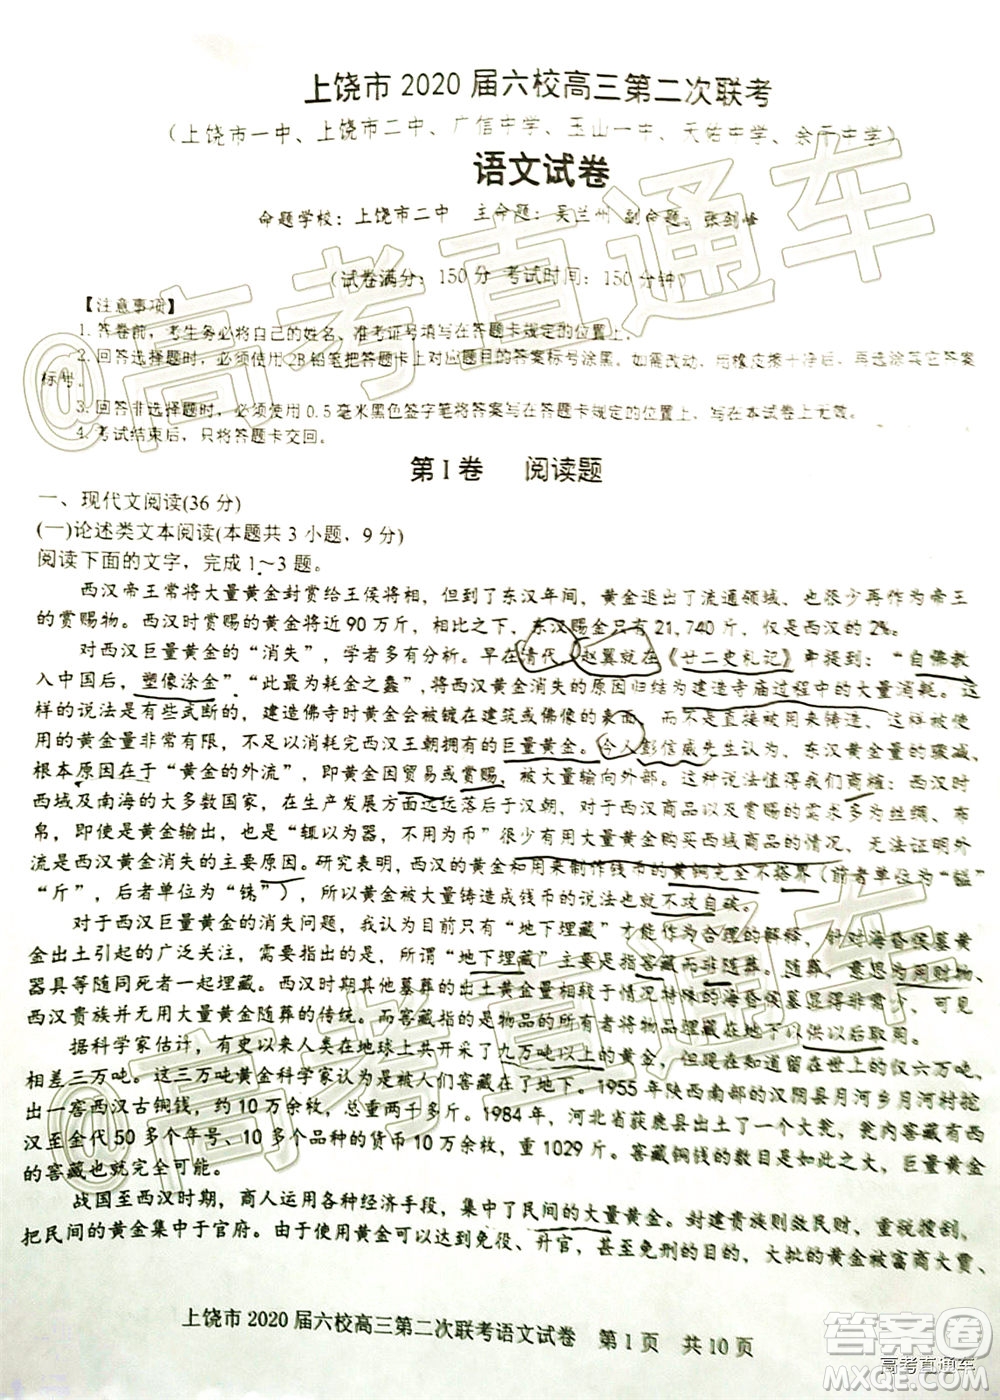 上饶市 2020 届六校高三第二次联考
（上饶市一中、上饶市二中、广信中学、玉山一中、天佑中学、余干中学）
语文试卷
命题学校：上饶市二中 主命题：吴兰州 副命题：张剑峰
（试卷满分：150 分 考试时间：150 分钟）
【注意事项】
1. 答卷前，考生务必将自己的姓名、准考证号填写在答题卡规定的位置上.
2. 回答选择题时，必须使用2B 铅笔把答题卡上对应题目的答案标号涂黑。如需改动，用橡皮擦干净后，再选涂其它答案
标号。
3. 回答非选择题时，必须使用 0.5 毫米黑色签字笔将答案写在答题卡规定的位置上、写在本试卷上无效。
4. 考试结束后，只将答题卡交回。
第 I 卷 阅读题
一、现代文阅读(36 分)
(一)论述类文本阅读(本题共 3 小题，9 分)
阅读下面的文字，完成 1～3 题。
西汉帝王常将大量黄金封赏给王侯将相们，但到了东汉年间，黄金退出了流通领域、也很少再作为帝王
的赏赐物。西汉时赏赐的黄金将近 90 万斤，相比之下，东汉赐金只有 21,740 斤，仅是西汉的 2%。
对西汉巨量黄金的“消失”，学者多有分析。早在清代，赵翼就在《廿二史札记》中提到：“自佛教
入中国后，塑像涂金”“此最为耗金之蠹”，将西汉黄金消失的原因归结为建造寺庙过程中的大量消耗。这
样的说法是有些武断的，建造佛寺时黄金会被镀在建筑或佛像的表面，而不是直接被用来铸造、这样被使
用的黄金量非常有限，不足以消耗完西汉王朝拥有的巨量黄金。今人彭信威先生认为、东汉黄金量的骤减，
根本原因在于“黄金的外流”，即黄金因贸易或赏赐，被大量输向外部。这种说法值得我们商榷：西汉时
西域及南海的大多数国家，在生产发展方面远远落后于汉朝，对于西汉商品以及赏赐的需求多为丝绸、布
帛，即使是黄金输出，也是“辄以为器，不用为币”很少有用大量黄金购买西域商品的情况、无法证明外
流是西汉黄金消失的主要原因。研究表明，西汉的黄金与用来制作钱币的黄铜完全不搭界（前者单位为“镒”
“斤”，后者单位为“铢”），所以黄金大量铸造成钱币的说法也就不攻自破。
对于西汉巨量黄金的消失问题，我认为只有“地下埋藏”才能作为合理的解释，针对海昏侯墓黄
金出土引起的广泛关注，需要说明的是，所谓“地下埋藏”主要是指窖藏而非随葬。随葬，意思为同财物、
器具等随同死者一起埋藏。西汉时期其他墓葬的出土黄金量相较于情况特殊的海昏侯墓显得非常少，可见
西汉贵族并无用大量黄金随葬的传统。而窖藏指的是物品的所有者将物品藏于地下以供以后取用。
据科学家估计，有史以来人类在地球上共开采了九万吨以上的黄金，但现在知道留在世上的仅六万吨，
相差三万吨。这三万吨黄金科学家认为是被人们窖藏在了地下。1955 年陕西南部的汉阴县月河乡月河村挖
出一窖西汉古铜钱，约 10 万余枚，总重量一千多斤。1984 年，河北省获鹿县出土一个大瓮，瓮内窖藏有西
汉至金代 50 多个年号、10 多个品种的货币 10 万余枚，重 1029 斤。窖藏铜钱的出现，也能说明，巨量黄金
的窖藏也就完全可能。
战国至西汉时期，商人运用各种经济手段，集中了民间的大量黄金。封建贵族则效民财、重税搜刮、
把民间的黄金集中于官府。由于使用黄金可以达到免役、升官，甚至免刑的目的，大批的黄金被富商大贾、
上饶市 2020 届六校高三第二次联考语文试卷 第 1 页 共 10 页
@高考直通车
@高考直通车
答案圈
MXQE.COM
高考直通车